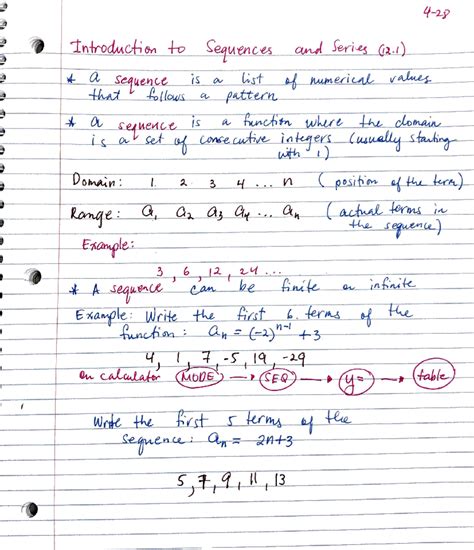 4-28
Introduction to Sequences and Series (12.1)
* a sequence is a list of numerical values
that follows a pattern
* a sequence is a function where the domain
is a set of consecutive integers (usually starting
with 1)
Domain: 1 2 3 4 ... n (position of the term)
Range: a₁ a₂ a₃ a₄ ... aₙ (actual terms in
the sequence)
Example:
3, 6, 12, 24 ...
* A sequence can be finite or infinite
Example: Write the first 6 terms of the
function: aₙ = (-2)ⁿ⁻¹ + 3
4, 1, 7, -5, 19, -29
on calculator MODE → SEQ → y= → table
Write the first 5 terms of the
sequence: aₙ = 2n+3
5, 7, 9, 11, 13